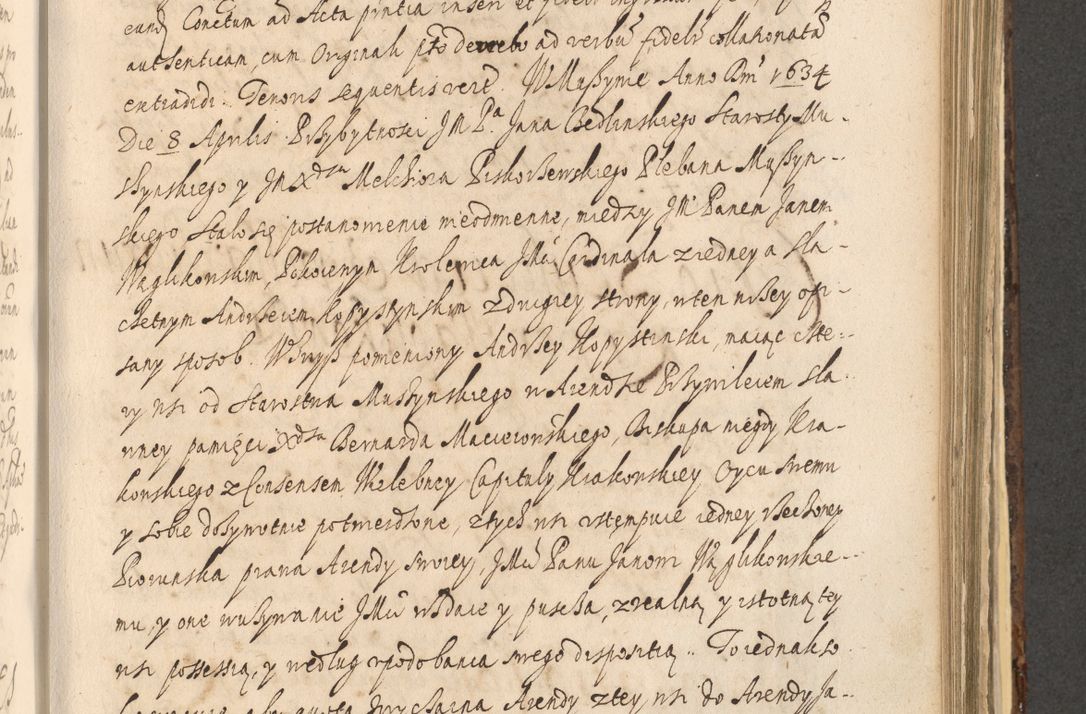 eand Conctum ad Acta pntia inseri et fideli
authenticam, cum Originali pto de verbo ad verbũ fidelr collationatã
extradidi. Tenoris sequentis vere. W Mussynie Anno Dni 1634
Die 8 Aprilis Przybytnosci JM Pa Jana Cedlinskiego Starosty Mu-
szynskiego y JM Xdza Melchiora Piskorzewskiego Plebana Muszyn-
skiego Stało się postanowienie nieodmienne, miedzy JM Panem Janem
Węglikowskim, Pokoiowym Krolewica JMći Cardinała z iedney a sla-
chetnym Andrzeiem Kopystynskim z drugiey strony, w ten niżey opi-
sany sposob. Wzwyż pomieniony Andrzey Kopystinski, maiąc czte-
ry wsi od Starostwa Muszynskiego w Arendzie Przywileiem sla-
wney pamięci Xdza Bernarda Macieiowskiego, Biskupa niegdy Kra-
kowskiego z Consensem Wielebney Capituly Krakowskiey Oycu swemu
y sobie dożywotnie potwierdzone, z tych wsi vstempuie iedney rzeczoney
Piorunska prawa Arendy swoiey, JMći Panu Janowi Węglikowskie-
mu, y one w używanie JMći wzdaie y puscza, z realną y istotną tey
wsi possessią, y według vpodobania swego dispositią. To iednakże
Arendy z tey wsi do Arendy Ja-